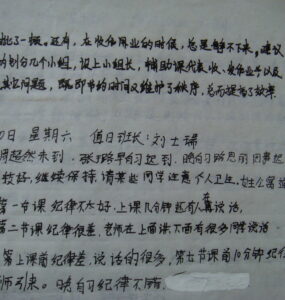 说了一嘴,还有,在收作业的时候,总是静不下来,建议
的划分几个小组,设上小组长,辅助课代表收、发作业以及
其它问题,既节节约时间又维护了秩序,总而提高了效率.
0日 星期六 值日班长:刘士瑞
周超然未到,张璐早自习迟到,晚自习路思雨因事
较好,继续保持,请某些同学注意个人卫生.
第一节课纪律不太好,上课几分钟还有人说话,
第二节课纪律很差,老师在上面讲下面有很多同学说话.
第上课前纪律差,说话的很多,第五节课前10分钟纪
师引来。晚自习纪律不错.